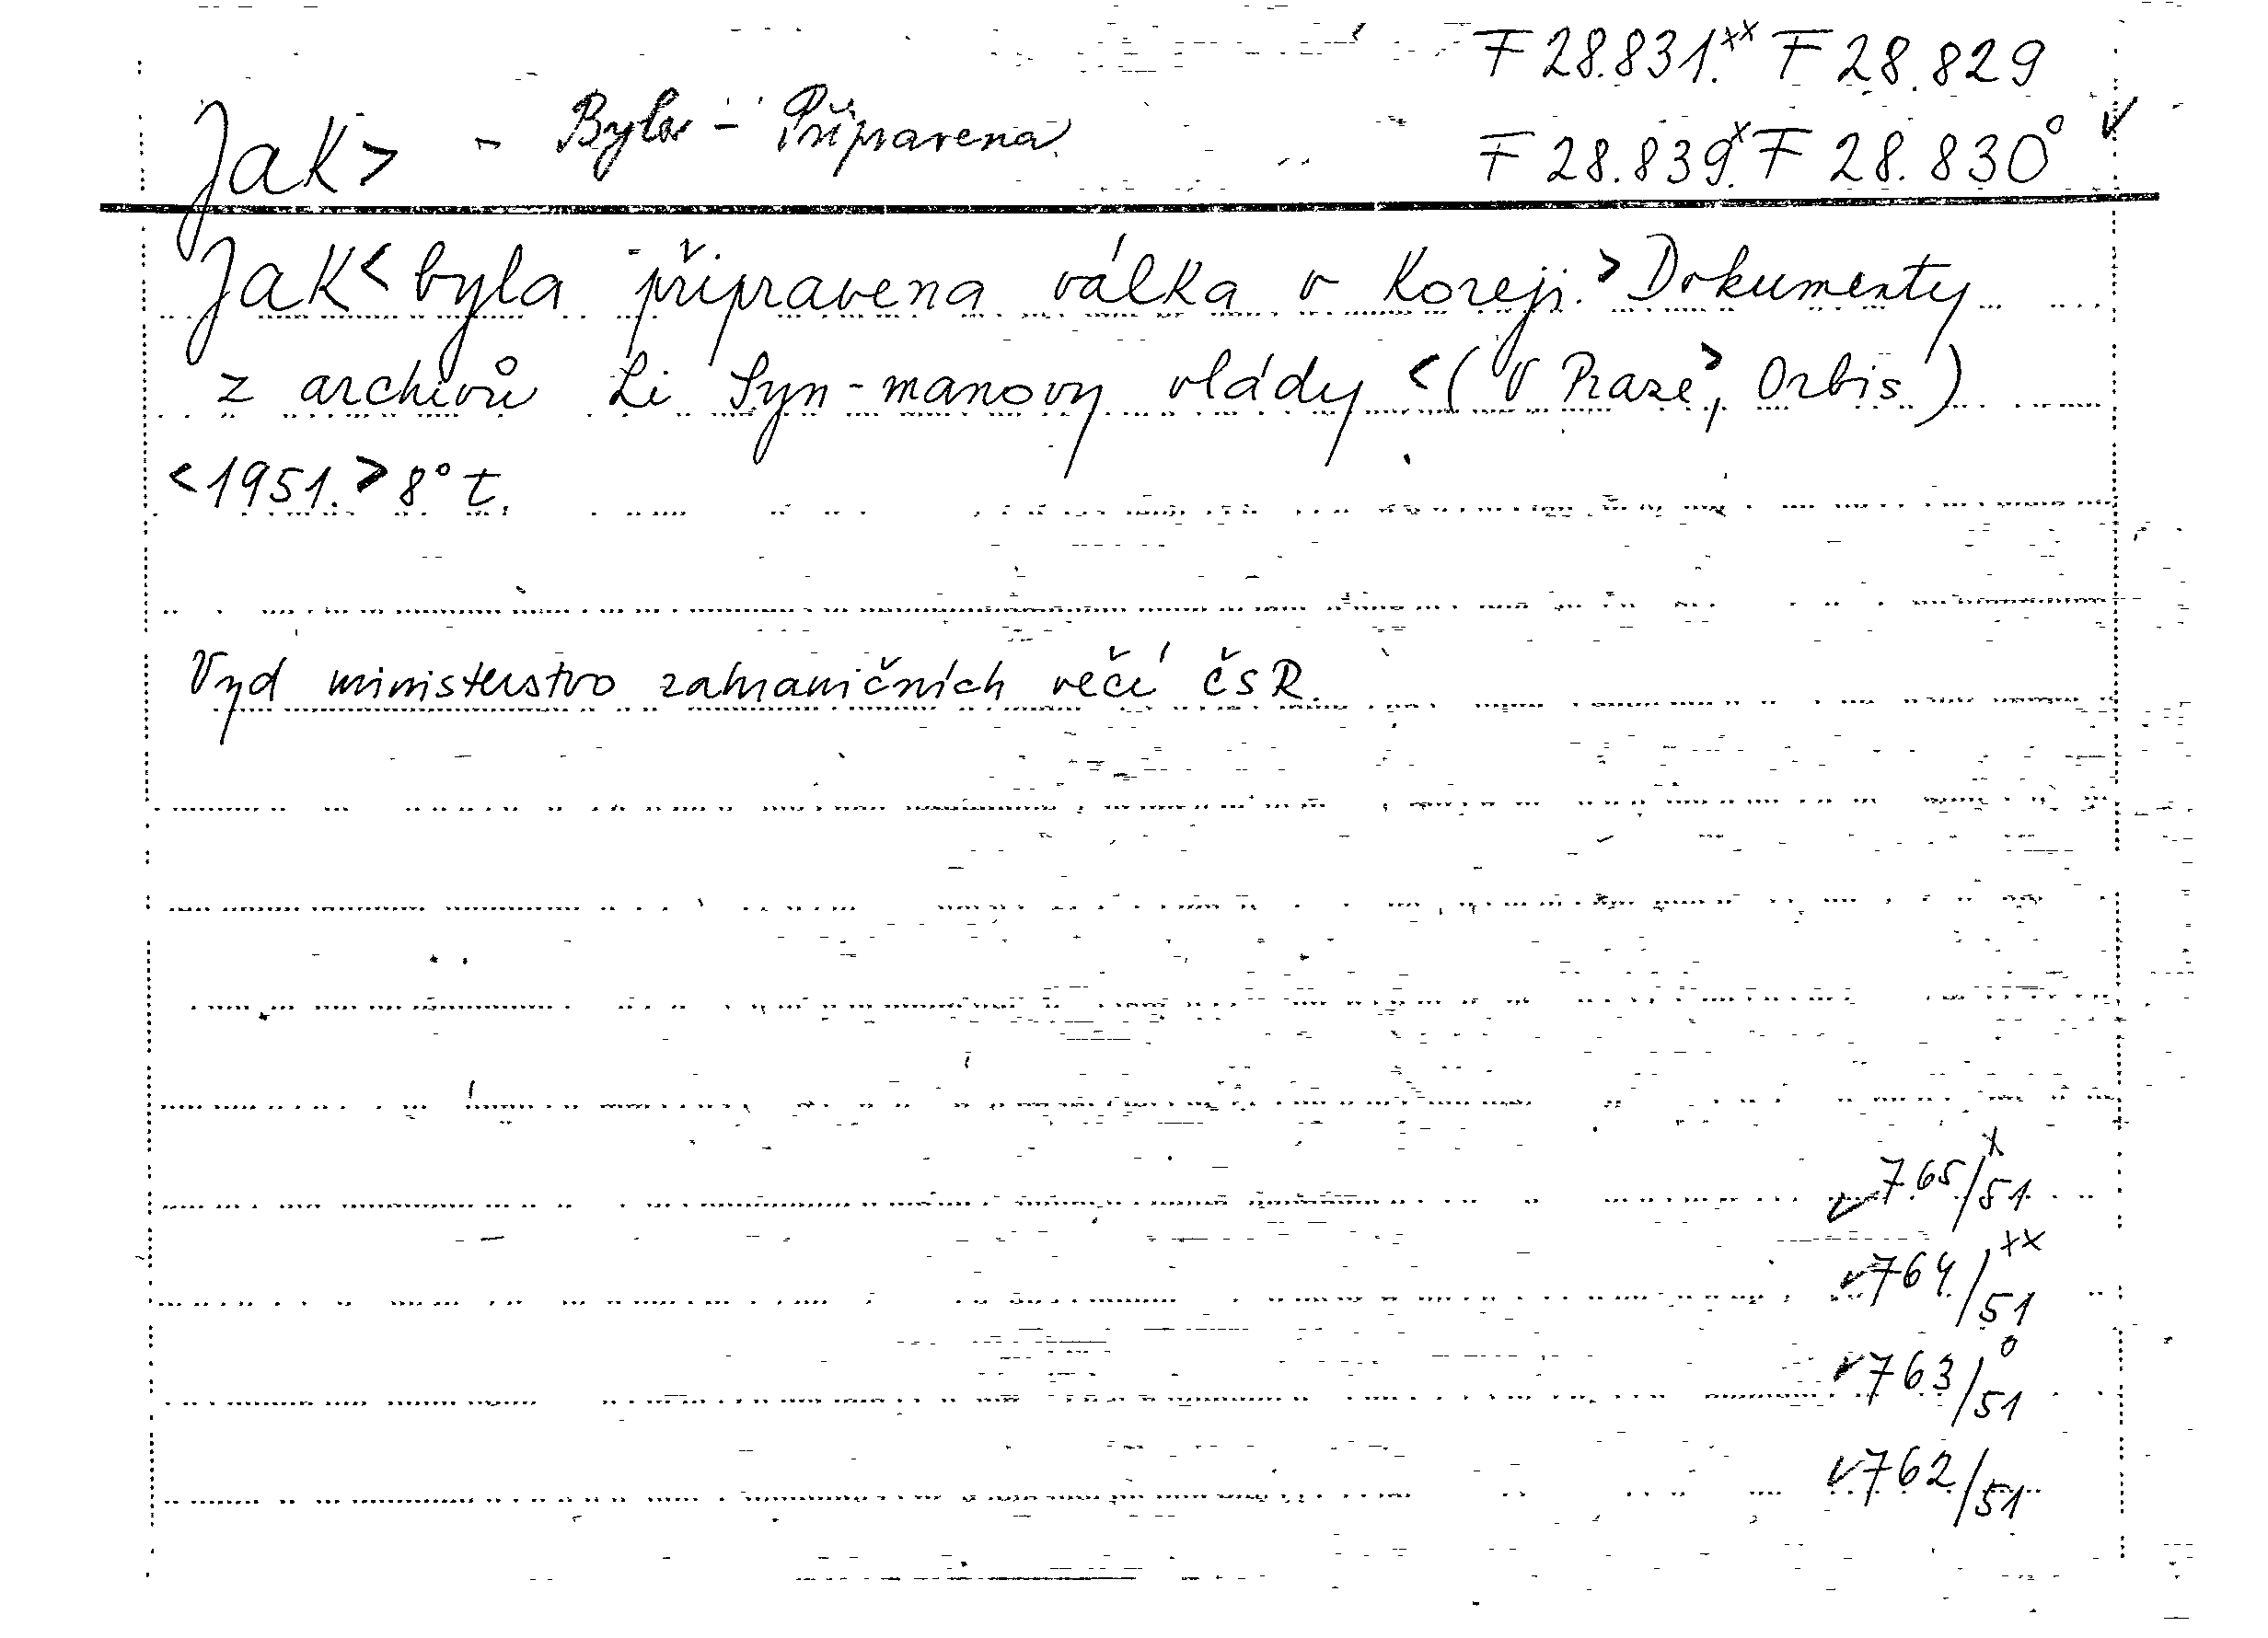 F 28.831.xx F 28.829
Jak> - Byla - Připravena F 28.839.x F 28.830°
Jak< byla připravena válka v Koreji.> Dokumenty
z archivů Li Syn-manovy vlády <(V Praze>, Orbis)
<1951.> 8° t.
Vyd ministerstvo zahraničních věcí ČSR.
765/51 x
764/51 xx
763/51 o
762/51